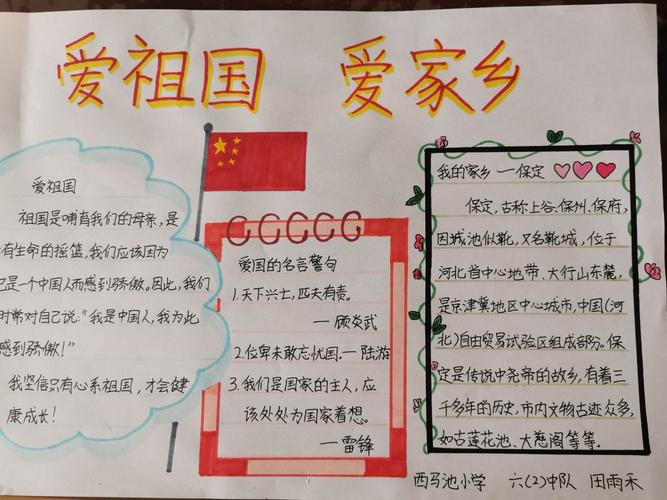 爱祖国 爱家乡
爱祖国
祖国是哺育我们的母亲,是
有生命的摇篮,我们应该因为
己是一个中国人而感到骄傲。因此,我们
时常对自己说:"我是中国人,我为此
感到骄傲!"
我坚信只有心系祖国,才会健
康成长!
爱国的名言警句
1.天下兴亡,匹夫有责。
—顾炎武
2.位卑未敢忘忧国.—陆游
3.我们是国家的主人,应
该处处为国家着想。
—雷锋
我的家乡—保定
保定,古称上谷、保州、保府,
因城池似靴,又名靴城,位于
河北省中心地带、太行山东麓,
是京津冀地区中心城市,中国(河
北)自由贸易试验区组成部分。保
定是传说中尧帝的故乡,有着三
千多年的历史,市内文物古迹众多,
如古莲花池、大慈阁等等.
西马池小学 六(2)中队 田雨禾